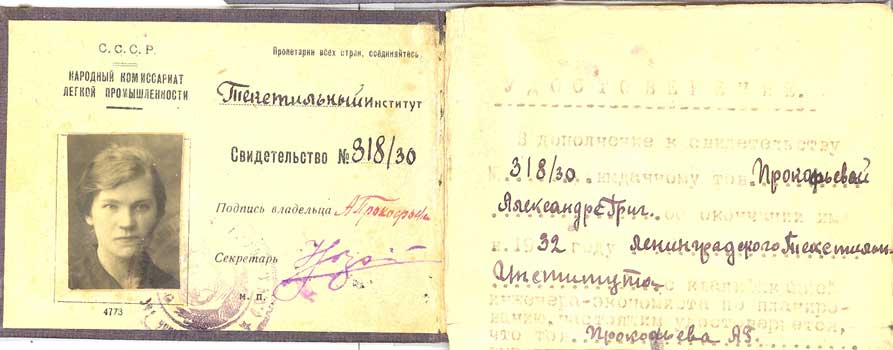 С. С. С. Р.
НАРОДНЫЙ КОМИССАРИАТ
ЛЕГКОЙ ПРОМЫШЛЕННОСТИ
4773
Пролетарии всех стран, соединяйтесь
Текстильный ИНСТИТУТ
Свидетельство № 318/30
Подпись владельца АПрокофьева
Секретарь
м. п.
УДОСТОВЕРЕНИЕ.
В дополнение к свидетельству
№ 318/30 выданному тов. Прокофьевой
Александре Григ. об окончании ею
в 1932 году Ленинградского Текстильн.
Института с квалификацией
инженера-экономиста по планиро-
ванию, настоящим удостоверяется,
что тов. Прокофьева АГ.